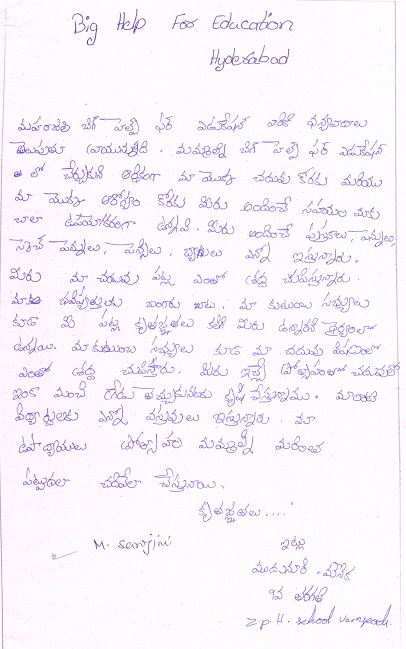 Big Help For Education
Hyderabad
మహారాజశ్రీ బిగ్ హెల్ప్ ఫర్ ఎడుకేషన్ వారికి ధన్యవాదాలు
తెలుపుతూ వ్రాయునది. మమ్మల్ని బిగ్ హెల్ప్ ఫర్ ఎడుకేషన్
లో చేర్చుకుని ఆర్థికంగా మా యొక్క చదువు కొరకు మరియు
మా యొక్క ఆరోగ్యం కొరకు మీరు అందించే సహాయం మాకు
చాలా ఉపయోగకరంగా ఉన్నవి. మీరు అందించే పుస్తకాలు, పెన్నులు,
స్కెచ్ పెన్నులు, పెన్సిలు, బ్యాగులు ఎన్నో ఇస్తున్నారు.
మీరు మా చదువు పట్ల ఎంతో శ్రద్ధ చుపిస్తున్నారు.
మాకు భవిష్యత్తుకు బంగారు బాట. మా కుటుంబ సభ్యులు
కూడా మీ పట్ల కృతజ్ఞతలు కలిగి మీరు ఉన్నారనే ధైర్యంలో
ఉన్నాయి. మా కుటుంబ సభ్యులు కూడా మా చదువు విషయంలో
ఎంతో శ్రద్ధ చుపిస్తారు. మీరు ఇచ్చే ప్రోత్సాహంతో చదువులో
ఇంకా మంచి గ్రేడు తెచ్చుకునుటకు కృషి చేస్తున్నాము. మాలాంటి
విద్యార్థులకు ఎన్నో వస్తువులు ఇస్తున్నారు. మా
ఉపాధ్యాయులు ప్రోత్సాహం మమ్మల్ని మరింత
పట్టుదలా చదివేలా చేస్తున్నాయి.
కృతజ్ఞతలు....
M. Sarojini ఇట్లు
మౌనిక
9వ తరగతి
Z.P.H. School